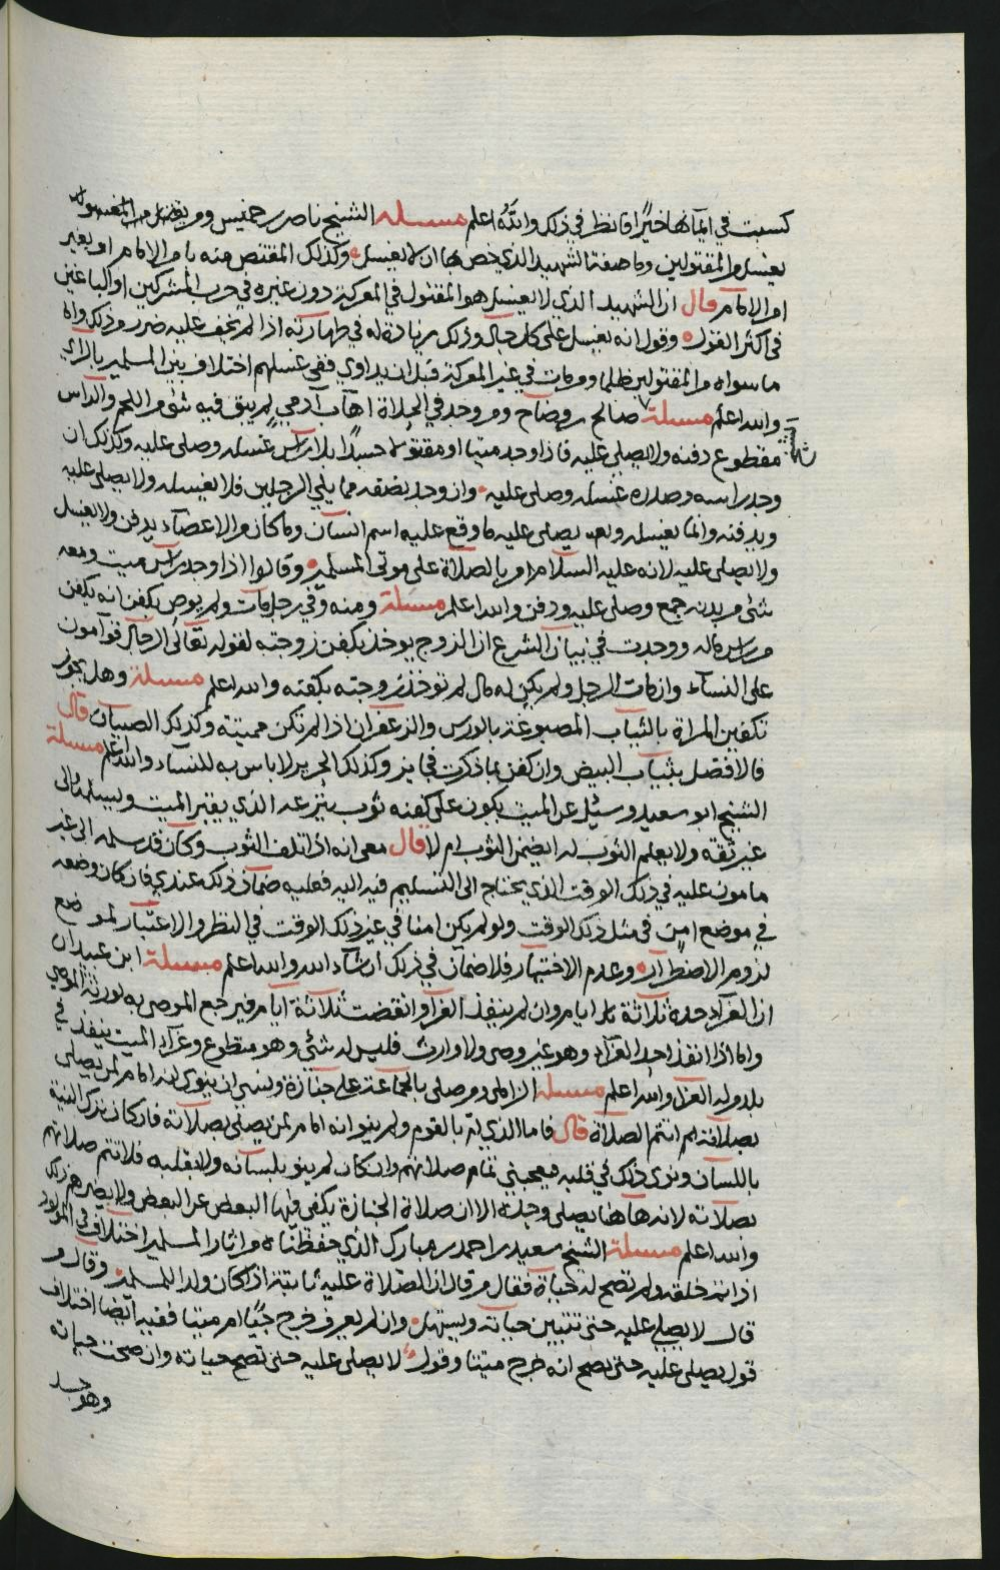 كسبت في ايمانها خيرًا فانظر في ذلك والله اعلم مسئلة الشيخ ناصر بن خميس ومن
يغسل من المقتولين وما صفة الشهيد الذي خص بها ان لا يغسل وكذلك المقتص منه بامر الامام او بغير
امر الامام قال ان الشهيد الذي لا يغسل هو المقتول في المعركة دون غيره في حرب المشركين او الباغين
في اكثر القول وقول انه يغسل على كل حال وذلك زيادة له في طهارته اذا لم يخف عليه ضرر وذلك واما
ما سواه من المقتولين ظلما ومن مات في غير المعركة قبل ان يداوي ففي غسلهم اختلاف بين المسلمين بالراي
والله اعلم مسئلة صالح بن وضاح ومن وجد في الجلاة اهاب آدمي لم يبق فيه شئ من اللحم والراس
مقطوع دفنه ولا يصلي عليه فاذا وجد ميتا او مقتولا جسدًا بلا راس غسله وصلى عليه وكذلك ان
وجد راسه وصدره غسله وصلى عليه وان وجد نصفه مما يلي الرجلين فلا يغسله ولا يصلي عليه
ويدفنه وانما يغسله ويصلي عليه ما وقع عليه اسم انسان وما كان من الاعضآء يدفن ولا يغسل
ولا يصلي عليه لانه عليه السلام امر بالصلاة على موتى المسلمين وقالوا اذا وجد راس ميت ومعه
شئ من بدنه جمع وصلي عليه ودفن والله اعلم مسئلة ومنه وفي رجل مات ولم يوص بكفن انه يكفن
من راس ماله ووجدت في بيان الشرع ان الزوج يوخذ بكفن زوجته لقوله تعالى الرجال قوآمون
على النسآء وان مات الرجل ولم يكن له مال لم توخذ زوجته بكفنه والله اعلم مسئلة وهل يجوز
تكفين المراة بالثياب المصبوغة بالورس والزعفران اذا لم تكن مميتة وكذلك الصبيان قال
فالافضل بثياب البيض وان كفن بما ذكرت فجايز وكذلك الحرير لا باس به للنساء والله اعلم مسئلة
الشيخ ابو سعيد وسئل عن الميت يكون على كفنه ثوب ينزعه الذي يقبر الميت ويسلمه الى
غير ثقة ولا يعلم الثوب له ايضمن الثوب ام لا قال معي انه اذا تلف الثوب وكان قد سلمه الى غير
مامون عليه في ذلك الوقت الذي يحتاج الى التسليم فيه اليه فعليه ضمان ذلك عندي فان كان وضعه
في موضع امن في مثل ذلك الوقت ولو لم يكن امنا في غير ذلك الوقت في النظر والاعتبار لموضع
لزوم الاضطرار وعدم الاختيار فلا ضمان في ذلك ان شاء الله والله اعلم مسئلة ابن عبيدان
ان العزآء حده ثلاثة ايام وان لم ينفذ العزآء وانقضت ثلاثة ايام فيرجع الموصى به لورثة الموصي
واما اذا انفذ احد العزآء وهو غير وصي ولا وارث فليس له شئ وهو متطوع وعزآء الميت ينفذ في
بلده العزآء والله اعلم مسئلة الزاملي ومن صلى بالجماعة على جنازة ونسي ان ينوي انه امام لمن يصلي
بصلاته اتم الصلاة قال فاما الذي ام بالقوم ولم ينو انه امام لمن يصلي بصلاته فان كان ترك النية
باللسان ونوى ذلك في قلبه فيعجبني تمام صلاتهم وان كان لم ينو بلسانه ولا بقلبه فلا تتم صلاتهم
بصلاته لانه هاهنا يصلي وحده الا ان صلاة الجنازة يكفي فيها البعض عن البعض ولا يضرهم ذلك
والله اعلم مسئلة الشيخ سعيد بن احمد بن مبارك الذي حفظناه من اثار المسلمين اختلاف في المولود
اذا تم خلقه ولم تصح له حياة فقال من قال ان الصلاة عليه ثابتة اذا كان ولد المسلمين وقال من
قال لا يصلى عليه حتى تتبين حياته ويستهل وان لم يعرف خرج حيًا ام ميتا ففيه ايضا اختلاف
قول يصلى عليه حتى يصح انه خرج ميتا وقول لا يصلى عليه حتى تصح حياته وان صحت حياته
وهو